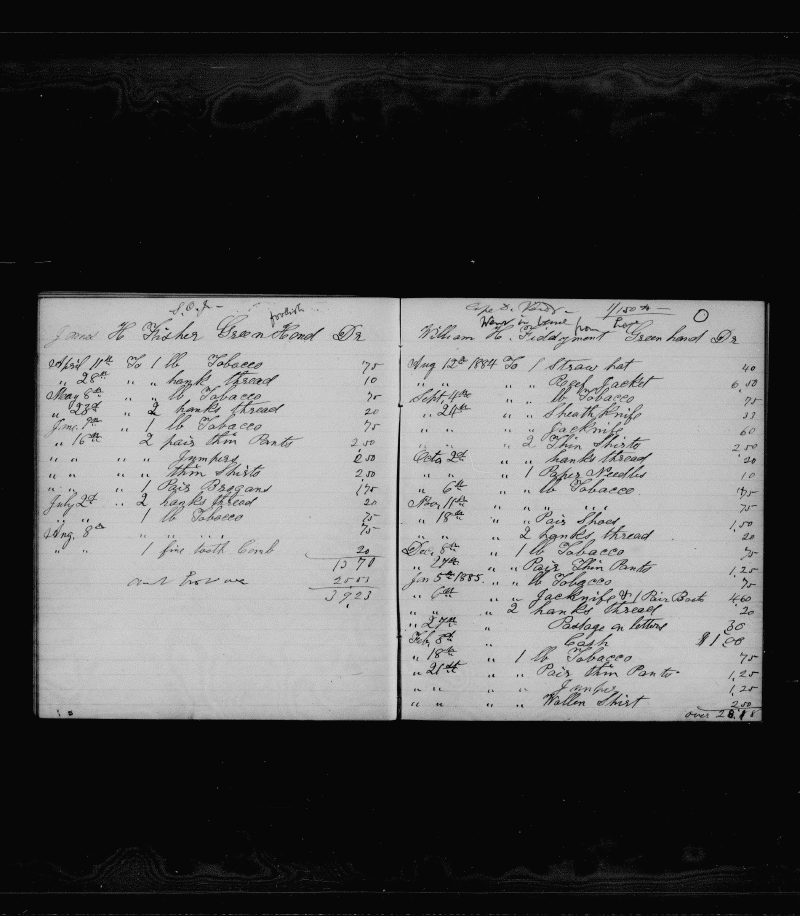 S. O. J.
foolish
H Fisher Green Hand Dr
April 11th To 1 lb Tobacco 75
" 28th " " hanks thread 10
May 8th " " lb Tobacco 75
" 23d " 2 hanks thread 20
June 9th " 1 lb Tobacco 75
" 16th 2 pair thin Pants 2.50
" " " " Jumpers 2.50
" " " " thin Shirts 2.50
" " " 1 Pair Brogans 1.75
July 2d " 2 hanks thread 20
" " 1 lb Tobacco 75
Aug. 8th " " " " 75
" " 1 fine tooth Comb 20
13 70
25 53
39,23
Cape D. Verds 1/150th
Went in from here
William H. Tiddyment Green hand Dr
Aug 12th 1884 To 1 Straw hat 40
" " " " Reef Jacket 6,50
Sept 4th " " lb Tobacco 75
" 24th " " Sheath Knife 33
" " " " Jacknife 60
" " " 2 Thin Shirts 2.50
Octo 2d " " hanks thread 20
" " " 1 Paper Needles 10
" 6th " " lb Tobacco 75
Nov 11th " " " " 75
" 18th " " Pair Shoes 1,50
" " 2 hanks thread 20
Dec. 8th " 1 lb Tobacco 75
" 27th " " Pair Thin Pants 1,25
Jan 5th 1885 " " lb Tobacco 75
" 6th " " Jacknife & 1 Pair Boots 4.60
" " " 2 hanks thread 20
" 27th " Postage on letters 30
Feb, 8th " Cash $1 00
" 18th " 1 lb Tobacco 75
" 21st " " Pair thin Pants 1,25
" " " " Jumper 1,25
" " " " Wollen Shirt 2,50
over 28.18